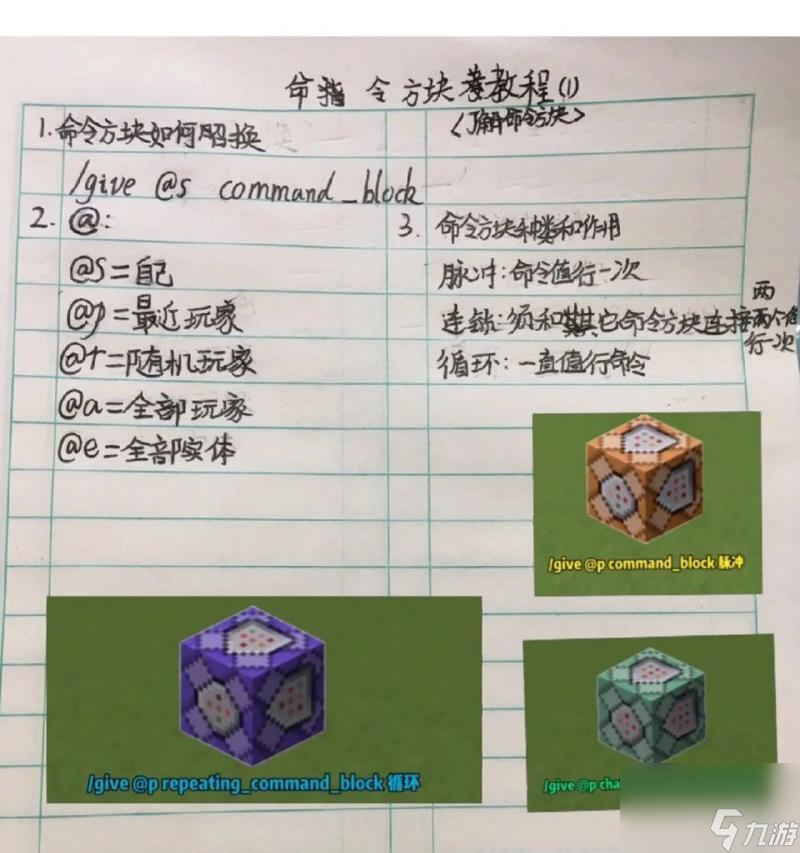 命指令方块卷教程(1)
<了解命令方块>
1.命令方块如何招换
/give @s command_block
2. @:
@s=自己
@p=最近玩家
@r=随机玩家
@a=全部玩家
@e=全部实体
3. 命令方块种类和作用
脉冲:命令值行一次
连锁:须和其它命令方块连接两个值
行一次
两
循环:一直值行命令
/give @p command_block 脉冲
/give @p repeating_command_block 循环
/give @p cha
九游